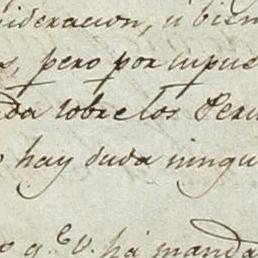 ideracion, ú bien
s, pero por supue
da sobre los Peru
hay duda ningu
q.e V. há manda